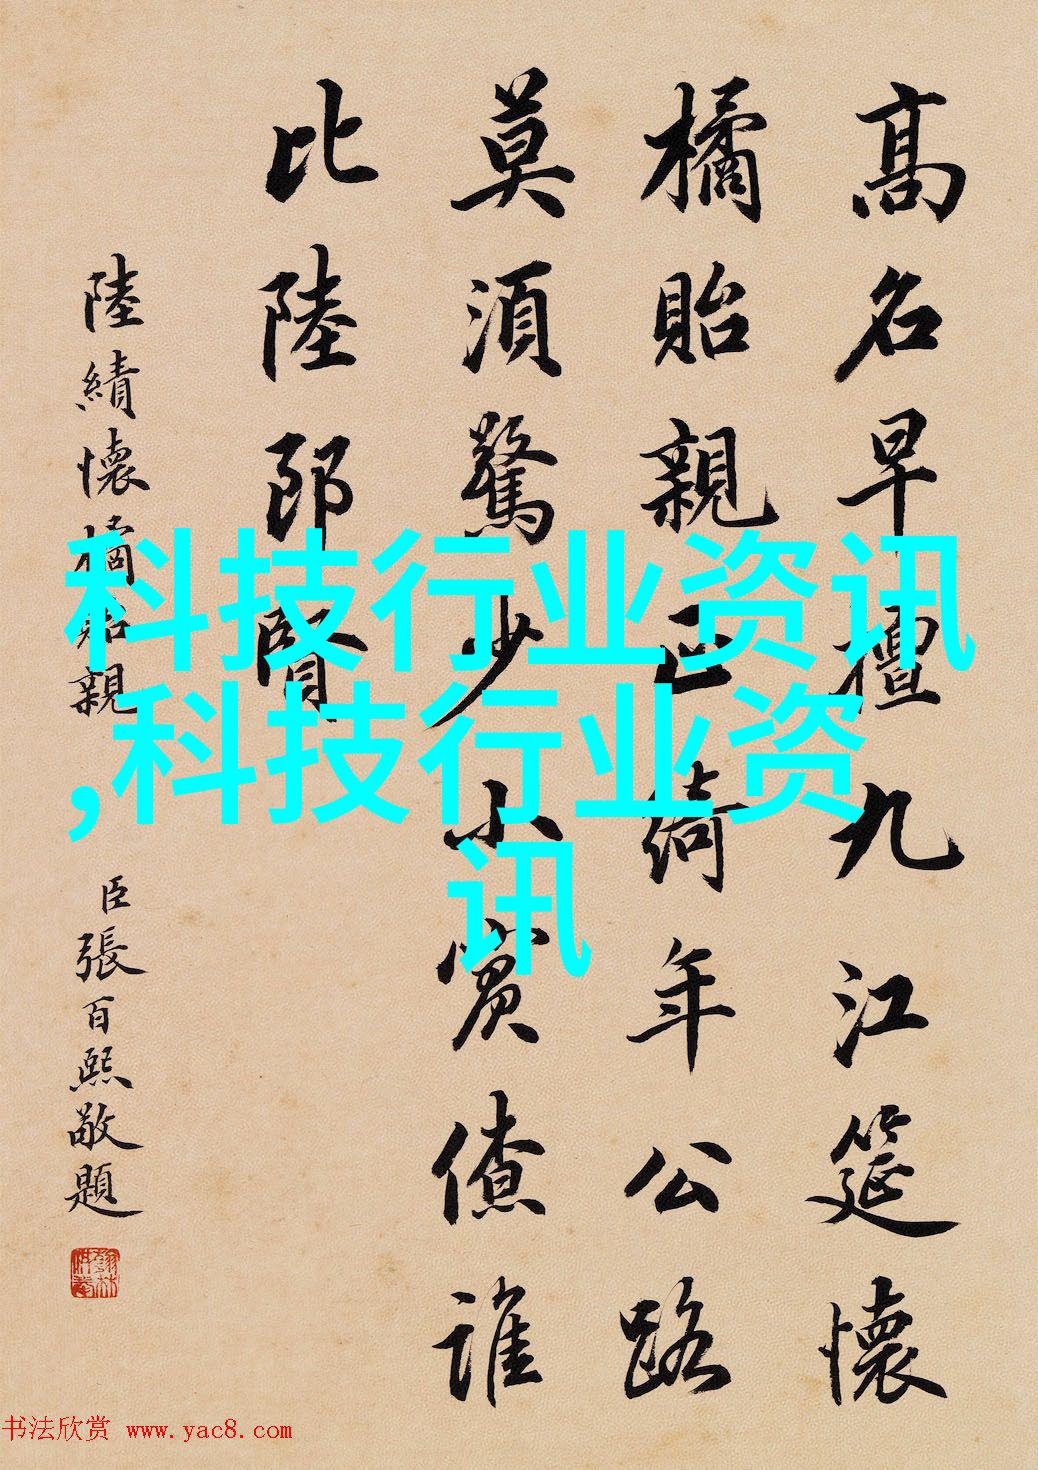 高名早擅九江筵懷
橘貽親正綺年公路
莫須驚少小賓僚誰
比陸郎賢
陸績懷橘貽親
臣張百熙敬題
科技行业资讯
,科技行业资
讯
书法欣赏 www.yac8.com